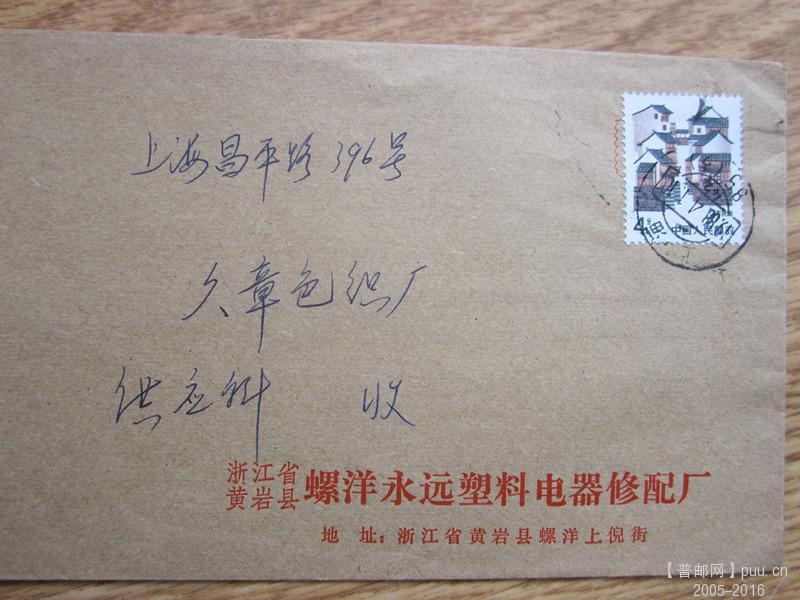 上海昌平路396号
久章色织厂
供应科 收
4分
中国人民邮政
浙江省
黄岩县
螺洋永远塑料电器修配厂
地 址：浙江省黄岩县螺洋上倪街
【普邮网】puu.cn
2005-2016